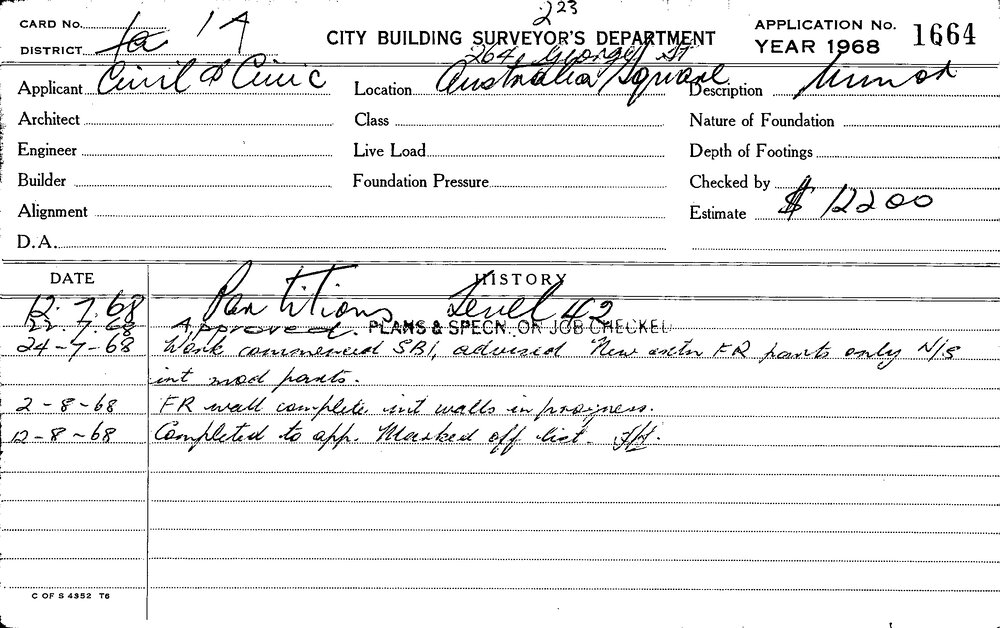 223
CARD No. 1A
CITY BUILDING SURVEYOR'S DEPARTMENT
APPLICATION No. 1664
DISTRICT
YEAR 1968
264 George St
Applicant Civil & Civic
Location Australia Square
Description Minor
Architect
Class
Nature of Foundation
Engineer
Live Load
Depth of Footings
Builder
Foundation Pressure
Checked by
Alignment
Estimate $ 12200
D.A.
DATE
HISTORY
12.7.68 Partitions Level 42
22.7.68 Approved. PLANS & SPECN. ON JOB CHECKED
24-7-68 Work commenced SBI, advised New extn FR parts only N/S
int mod parts.
2-8-68 FR wall complete int walls in progress.
12-8-68 Completed to app. Marked off list.
C OF S 4352 T6